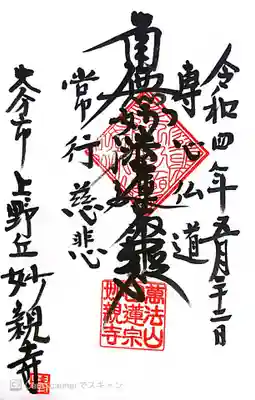 令和四年五月二十二日
専心仏道
南無妙法蓮華経
常行慈悲
大分市上野丘妙親寺
萬法山
日蓮宗
妙親寺
でスキャン